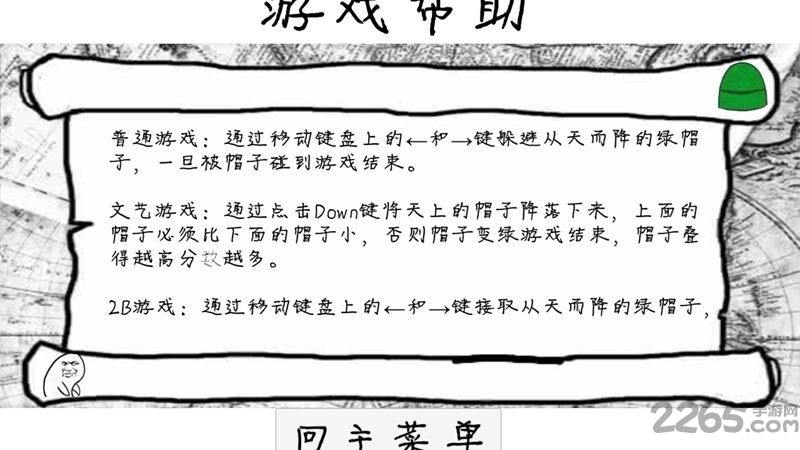 游戏帮助
普通游戏：通过移动键盘上的←和→键躲避从天而降的绿帽
子，一旦被帽子碰到游戏结束。
文艺游戏：通过点击Down键将天上的帽子降落下来，上面的
帽子必须比下面的帽子小，否则帽子变绿游戏结束，帽子叠
得越高分数越多。
2B游戏：通过移动键盘上的←和→键接取从天而降的绿帽子，
回主菜单
2265手游网
.com